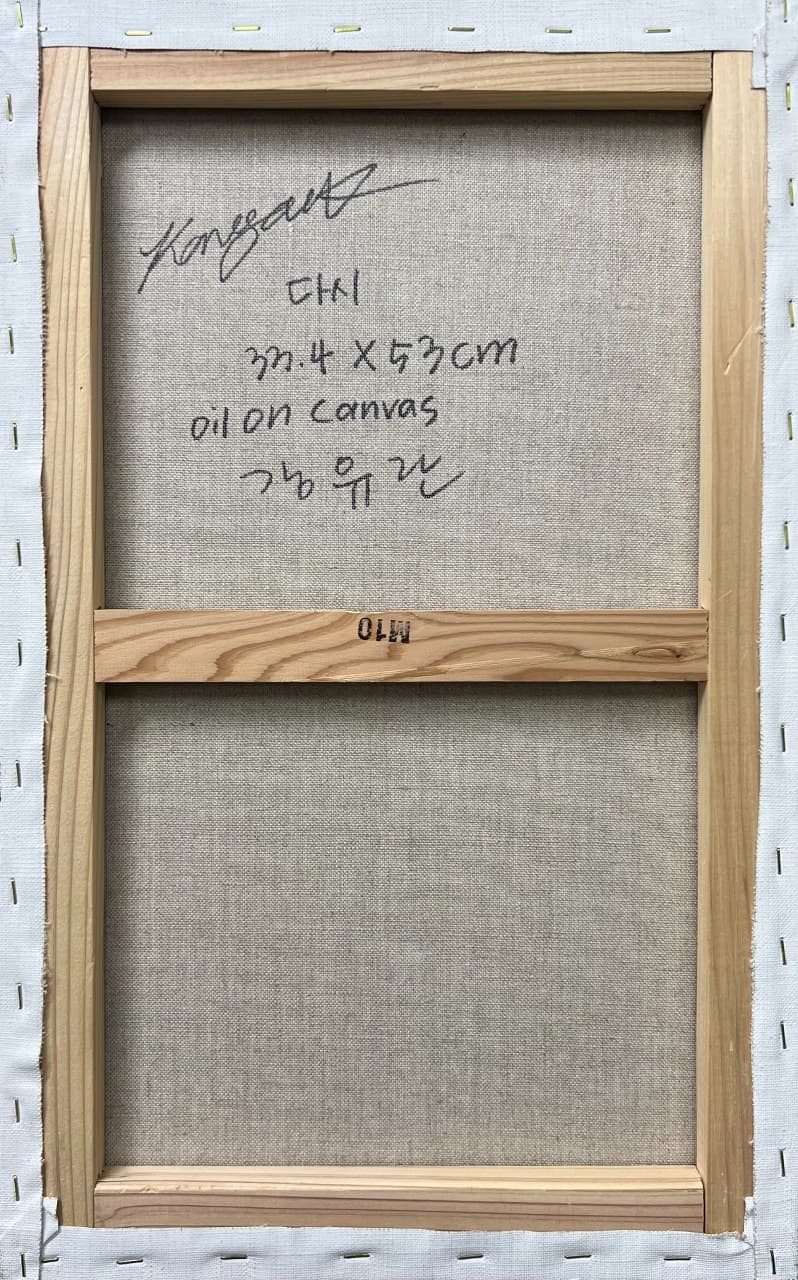 다시
33.4 X 53cm
oil on canvas
강유란
M10